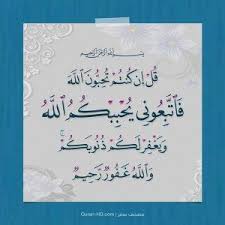 بِسْمِ اللَّهِ الرَّحْمَٰنِ الرَّحِيمِ
قُلْ إِن كُنتُمْ تُحِبُّونَ اللَّهَ
فَاتَّبِعُونِي يُحْبِبْكُمُ اللَّهُ
وَيَغْفِرْ لَكُمْ ذُنُوبَكُمْ ۗ
وَاللَّهُ غَفُورٌ رَّحِيمٌ
Quran-HD.com | مصحف سطر